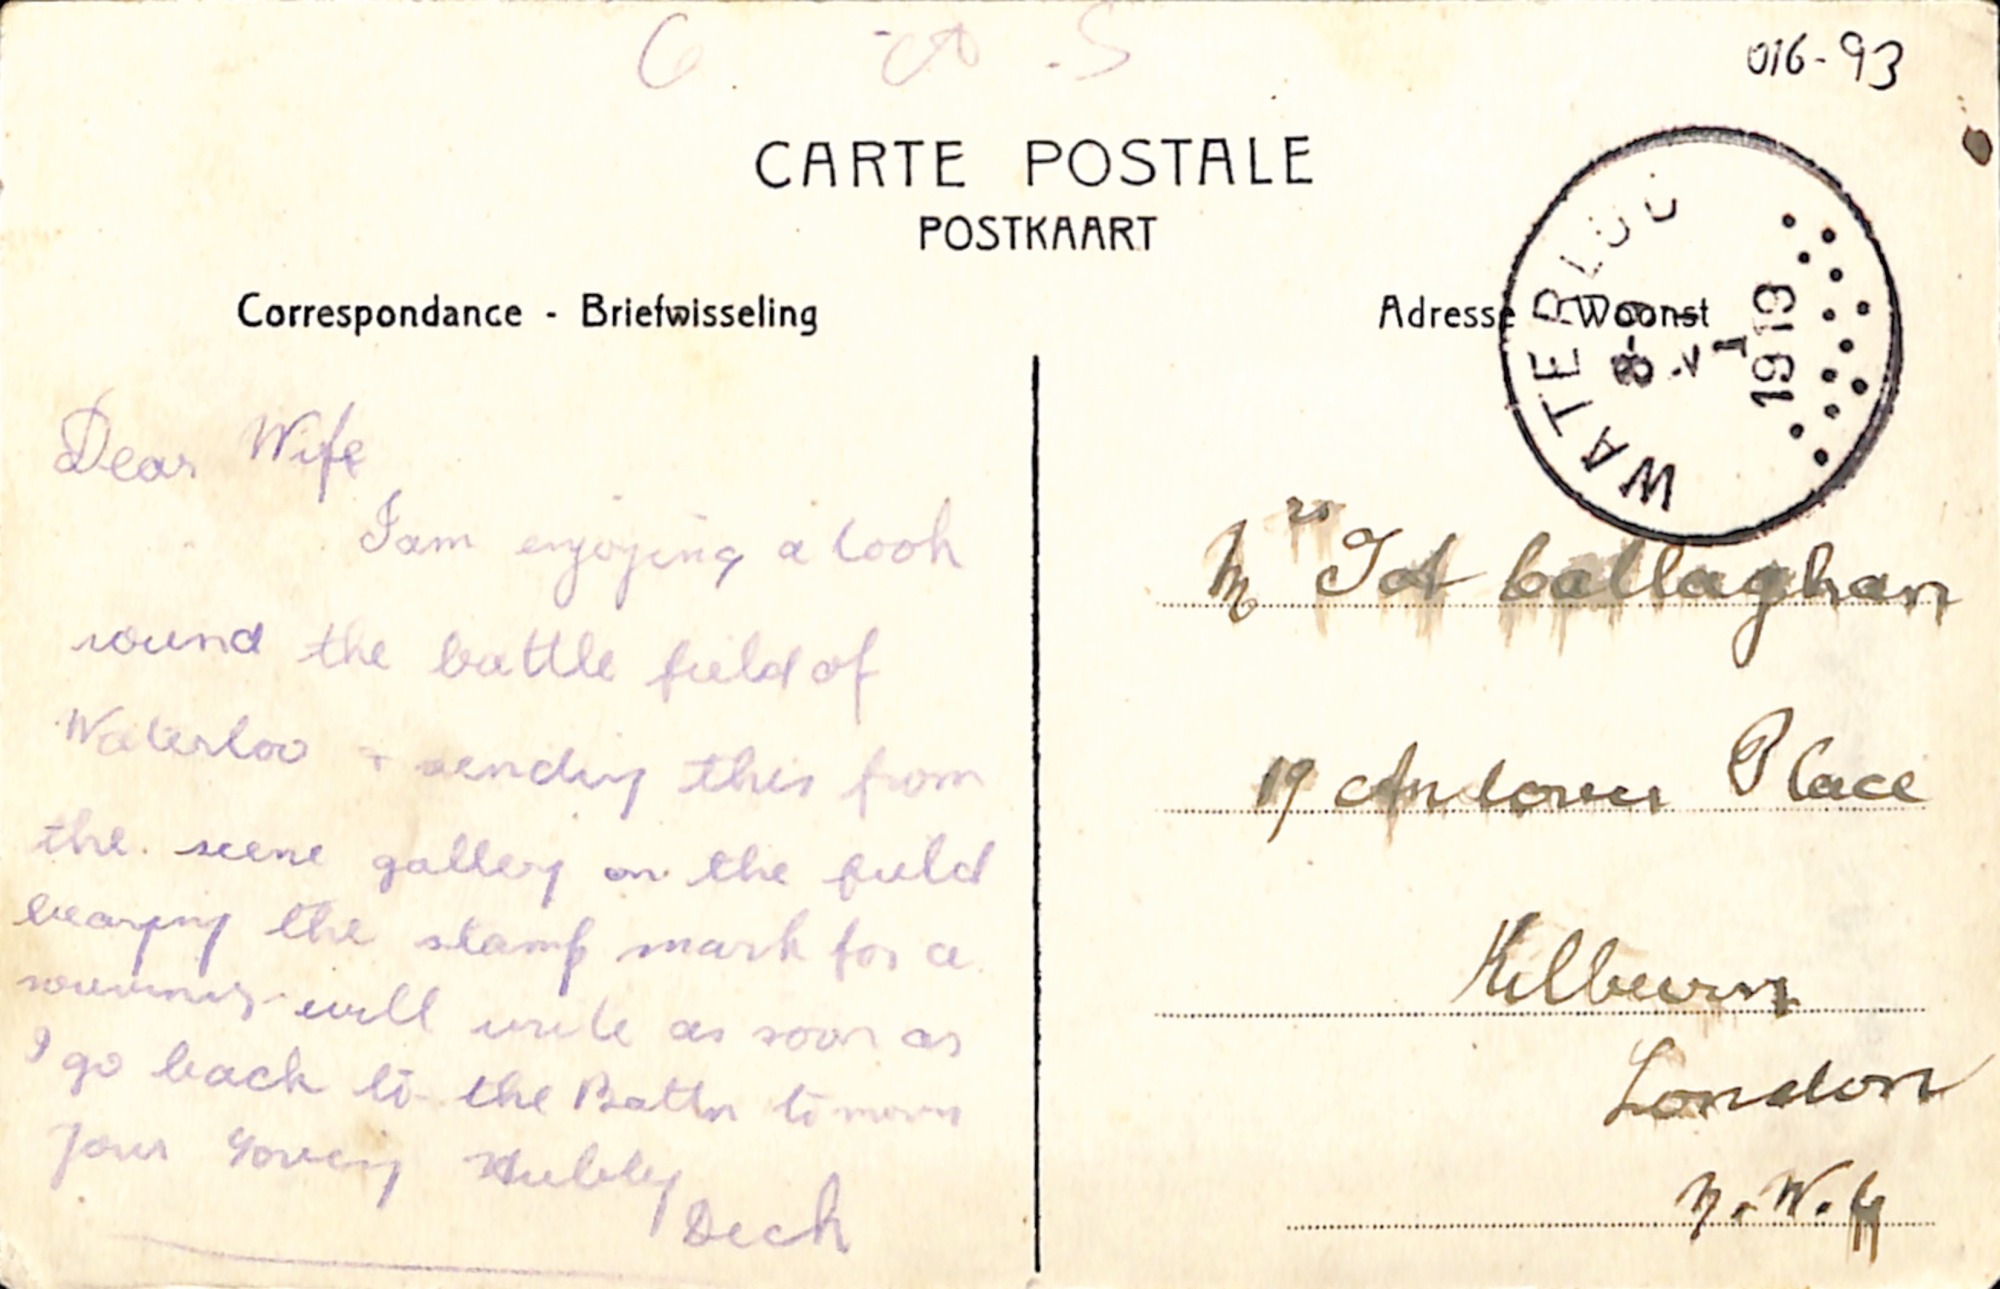 016-93
CARTE POSTALE
POSTKAART
Correspondance - Briefwisseling
Adresse Woonst
WATERLOO
8-
V
1
1919
Dear Wife
I am enjoying a look
round the battle field of
Waterloo + sending this from
the scene gallery on the field
bearing the stamp mark for a
souvenir will write as soon as
I go back to the Battn
Your Loving Hubby
Dick
Mrs Callaghan
19 Andover Place
Kilburn
London
N.W.6